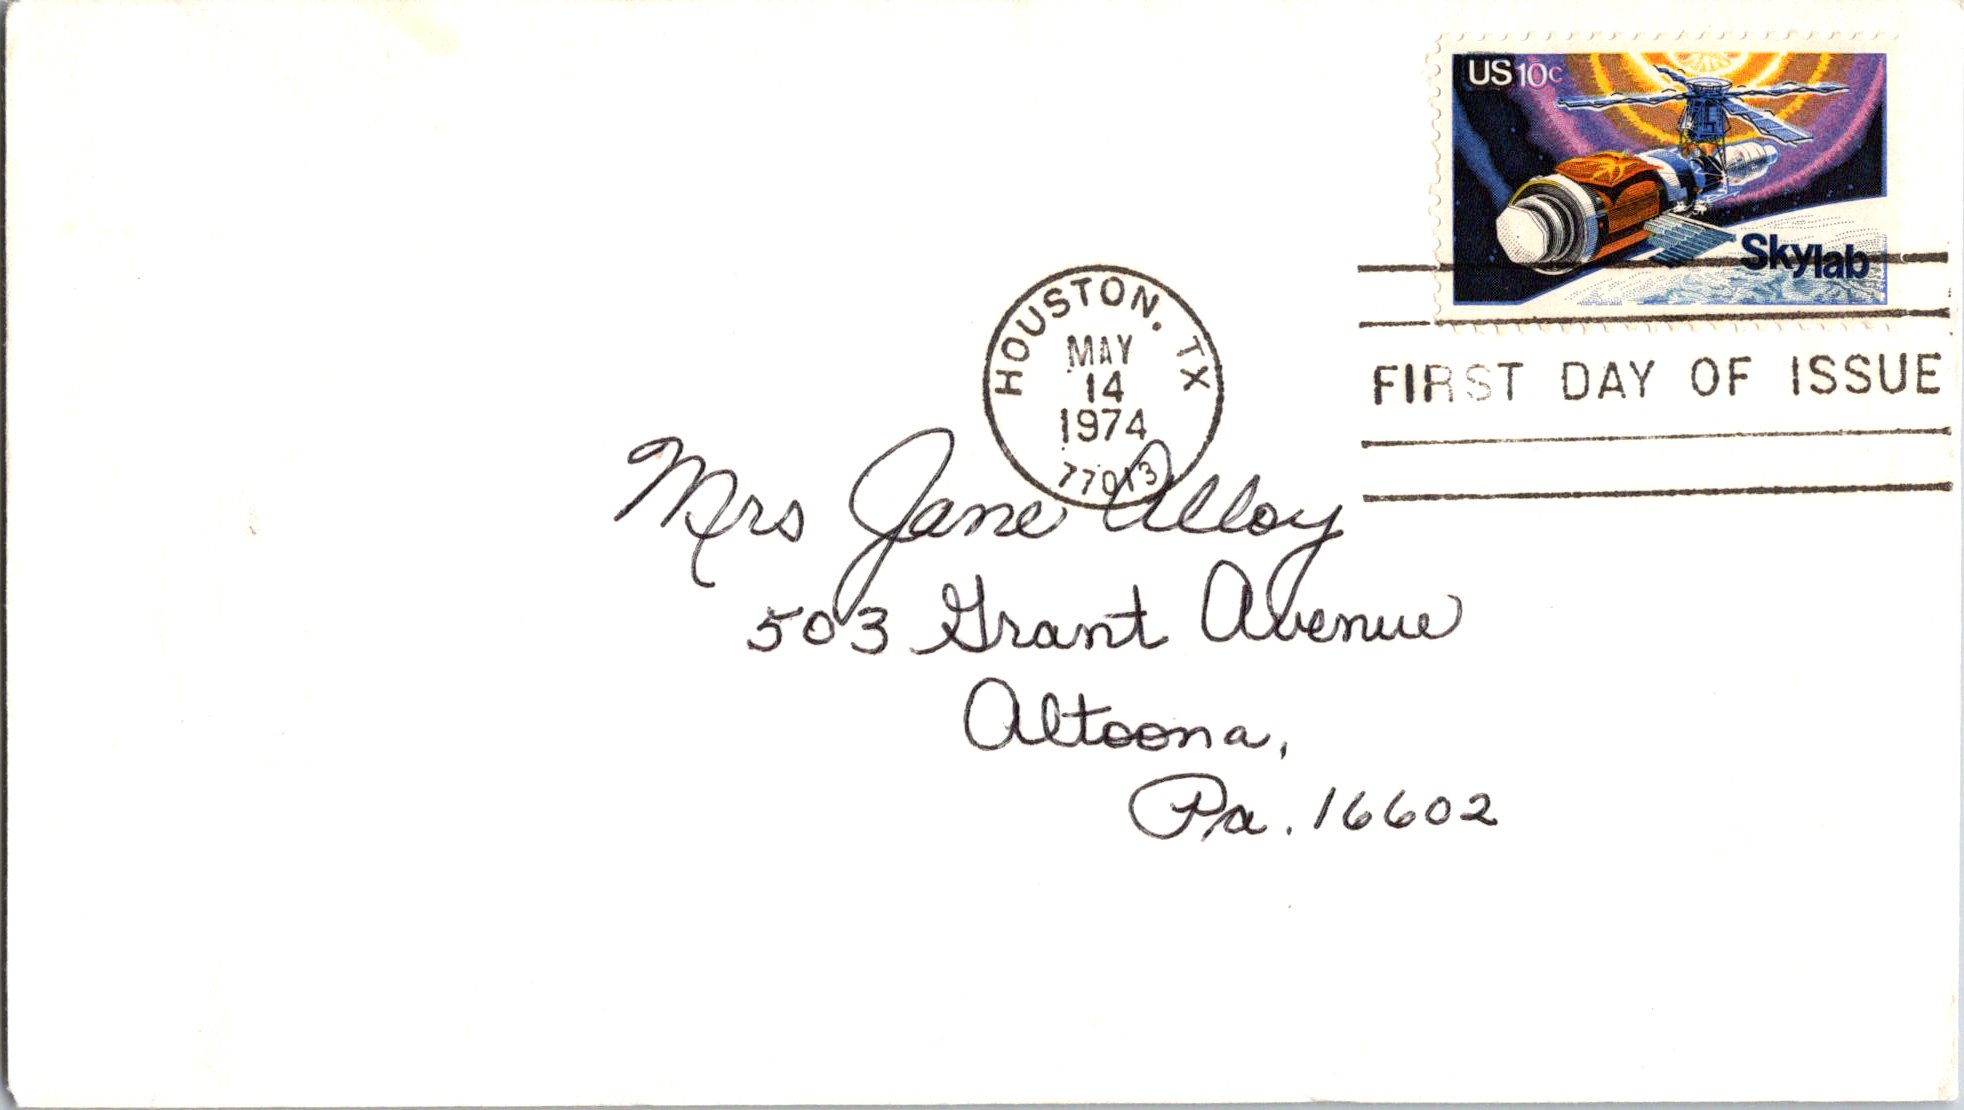 US 10c
Skylab
HOUSTON, TX
MAY
14
1974
77013
FIRST DAY OF ISSUE
Mrs Jane Alloy
503 Grant Avenue
Altoona,
Pa. 16602